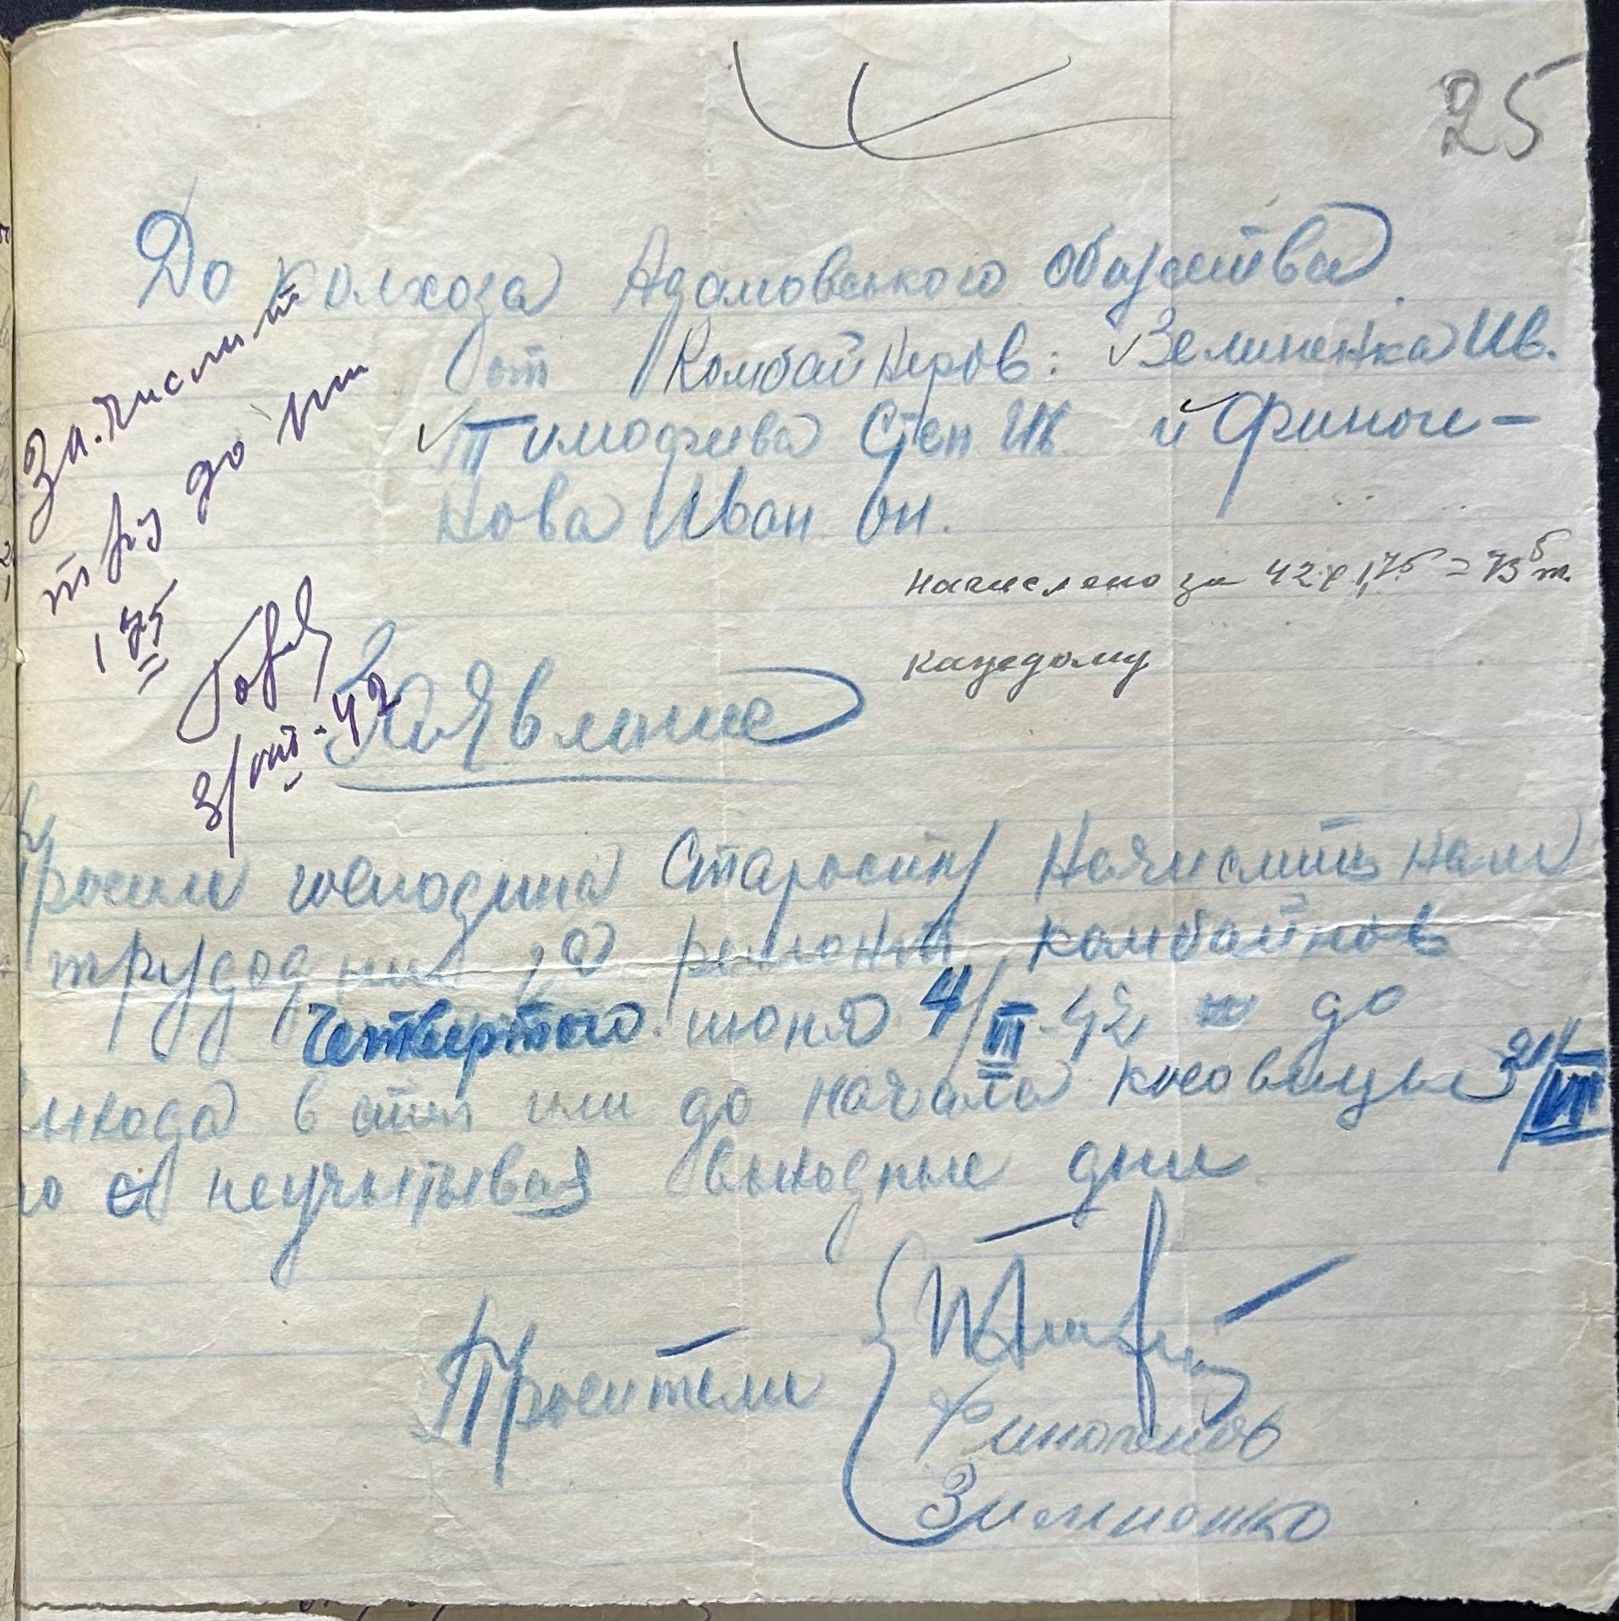 25
До колхоза Адамовського общества
от Комбайнеров: Зелиненка Ив.
Тимофиева Степ. Ив. и Финоге-
нова Иван
Зачислить
труд. дни
1 75
3/окт-42
начислено за 42 х 1,75 = 73,5 т.
каждому
Заявлиние
Просим господина Старосту Начислить нам
трудодни за ремонт комбайнов
Четвертого июня 4/VI-42 до
выхода в степ или до начала косовицы
неучытывая выходные дни
Просители
Финогенов
Зилиненко